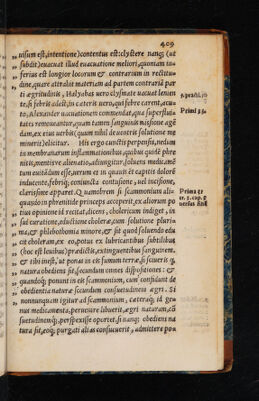 409
uisum est, intentione) contentus est: clystere nanq; (ut
subdit) euacuat illud euacuatione meliori, quoniam in-
ferius est longior locorum & contrarium in rectitu-
dine, quare attrahit materiam ad partem contrariã par
ti ægritudinis. Halyabas uero clysmate uacuat lenien
te, si febris adest, in cæteris uero, qui febre carent, acu-
to, Alexander uacuationem commendat, quæ superflui-
tates remoueantur, quam tamen sanguinis missione agẽ
dam, ex eius uerbis (quum nihil de uentris solutione me
minerit) elicitur. His ergo cunctis perpensis, nedum
in membranarum inflammationibus, quibus quidẽ phre
nitis, mentisue alienatio, adiungitur, soluens medicamẽ
tum euitãdum esse, uerum et in quauis ẽt capitis dolorẽ
inducente, febriq; coniuncta contusione, uel incisione,
clarissime apparet. Quamobrem si scammonium ali-
quando in phrenitide princeps acceperit, ex aliorum po
tius opinione id recitat, dicens, cholericum indiget, in
sui curatione, eductione choleræ, cum solutione pluri-
ma, & phlebothomia minore, & ut sit quod soluendo edu
cit choleram, ex eo, potus ex lubricantibus subtilibus
(hoc est leuibus) prædictis, extinguentibus sanguinem,
& tibi inest, ut ponas in eis
natura obediens sit, secundum omnes dispositiones: &
quandoq; ponunt in eis scammonium, cum confidunt de
obedientia naturæ secundum consuetudinem ægri. Si
nonnunquam igitur ad scammonium, cæteraq; id ge-
nus medicamenta, peruenire libuerit, ægri naturam, cõ
suetudinemq; perspexisse oportet, si nanq; obediens na
tura sit, eoq; purgati alias consueuerit, admittere po
Primi 23.